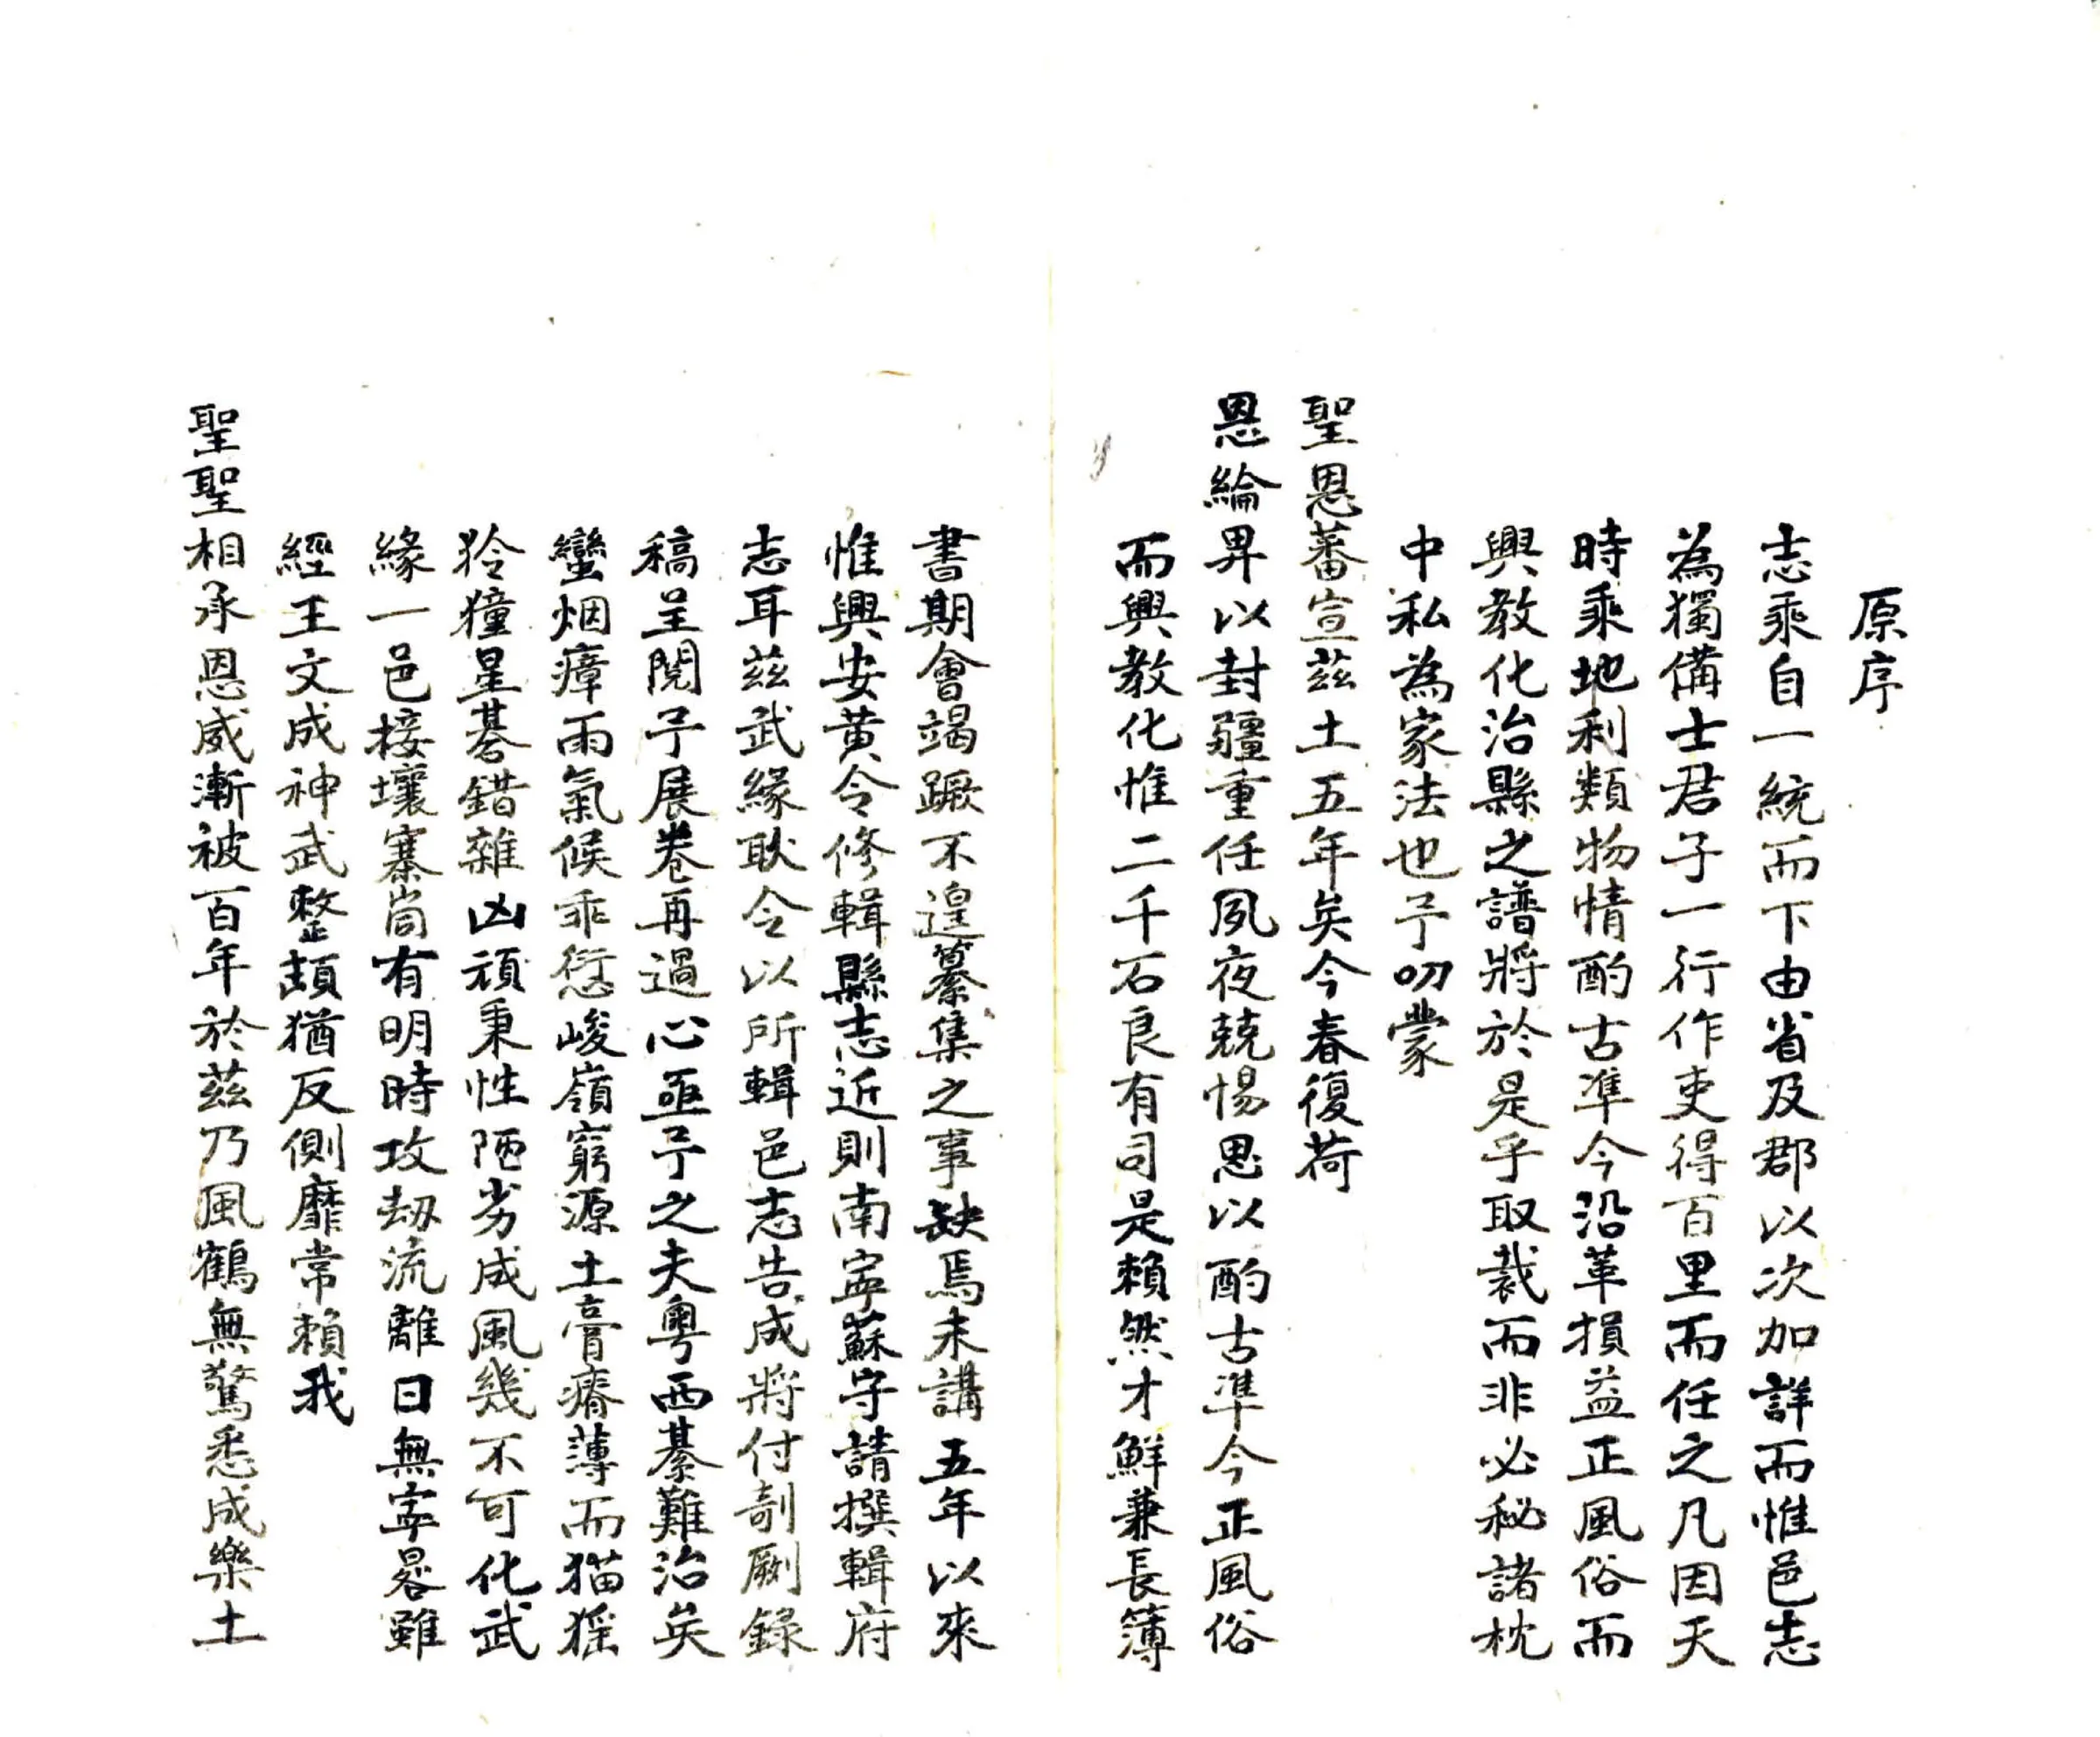 原序
志乘自一統而下由省及郡以次加詳而惟邑志
為獨備士君子一行作吏得百里而任之凡因天
時乘地利類物情酌古準今沿革損益正風俗而
興教化治縣之譜將於是乎取裁而非必秘諸枕
中私為家法也予叨蒙
聖恩蕃宣茲土五年矣今春復荷
恩綸畀以封疆重任夙夜兢惕思以酌古準今正風俗
而興教化惟二千石良有司是賴然才鮮兼長簿
書期會竭蹶不遑纂集之事缺焉未講五年以來
惟興安黃令修輯縣志近則南寧蘇守請撰輯府
志耳茲武緣耿令以所輯邑志告成將付剞劂錄
稿呈閱予展卷再過心亟予之夫粵西綦難治矣
蠻烟瘴雨氣候乖愆峻嶺窮源土膏瘠薄而猫猺
狑獞星碁錯雜凶頑秉性陋劣成風幾不可化武
緣一邑接壤寨峝有明時攻刼流離日無寧晷雖
經王文成神武整頓猶反側靡常賴我
聖聖相承恩威漸被百年於茲乃風鶴無驚悉成樂土